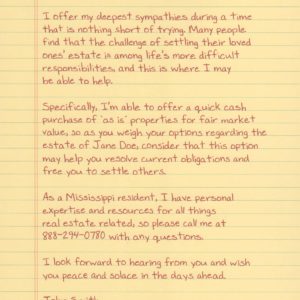 I offer my deepest sympathies during a time
that is nothing short of trying. Many people
find that the challenge of settling their loved
ones' estate is among life's more difficult
responsibilities, and this is where I may
be able to help.
Specifically, I'm able to offer a quick cash
purchase of 'as is' properties for fair market
value, so as you weigh your options regarding the
estate of Jane Doe, consider that this option
may help you resolve current obligations and
free you to settle others.
As a Mississippi resident, I have personal
expertise and resources for all things
real estate related, so please call me at
888-294-0780 with any questions.
I look forward to hearing from you and wish
you peace and solace in the days ahead.